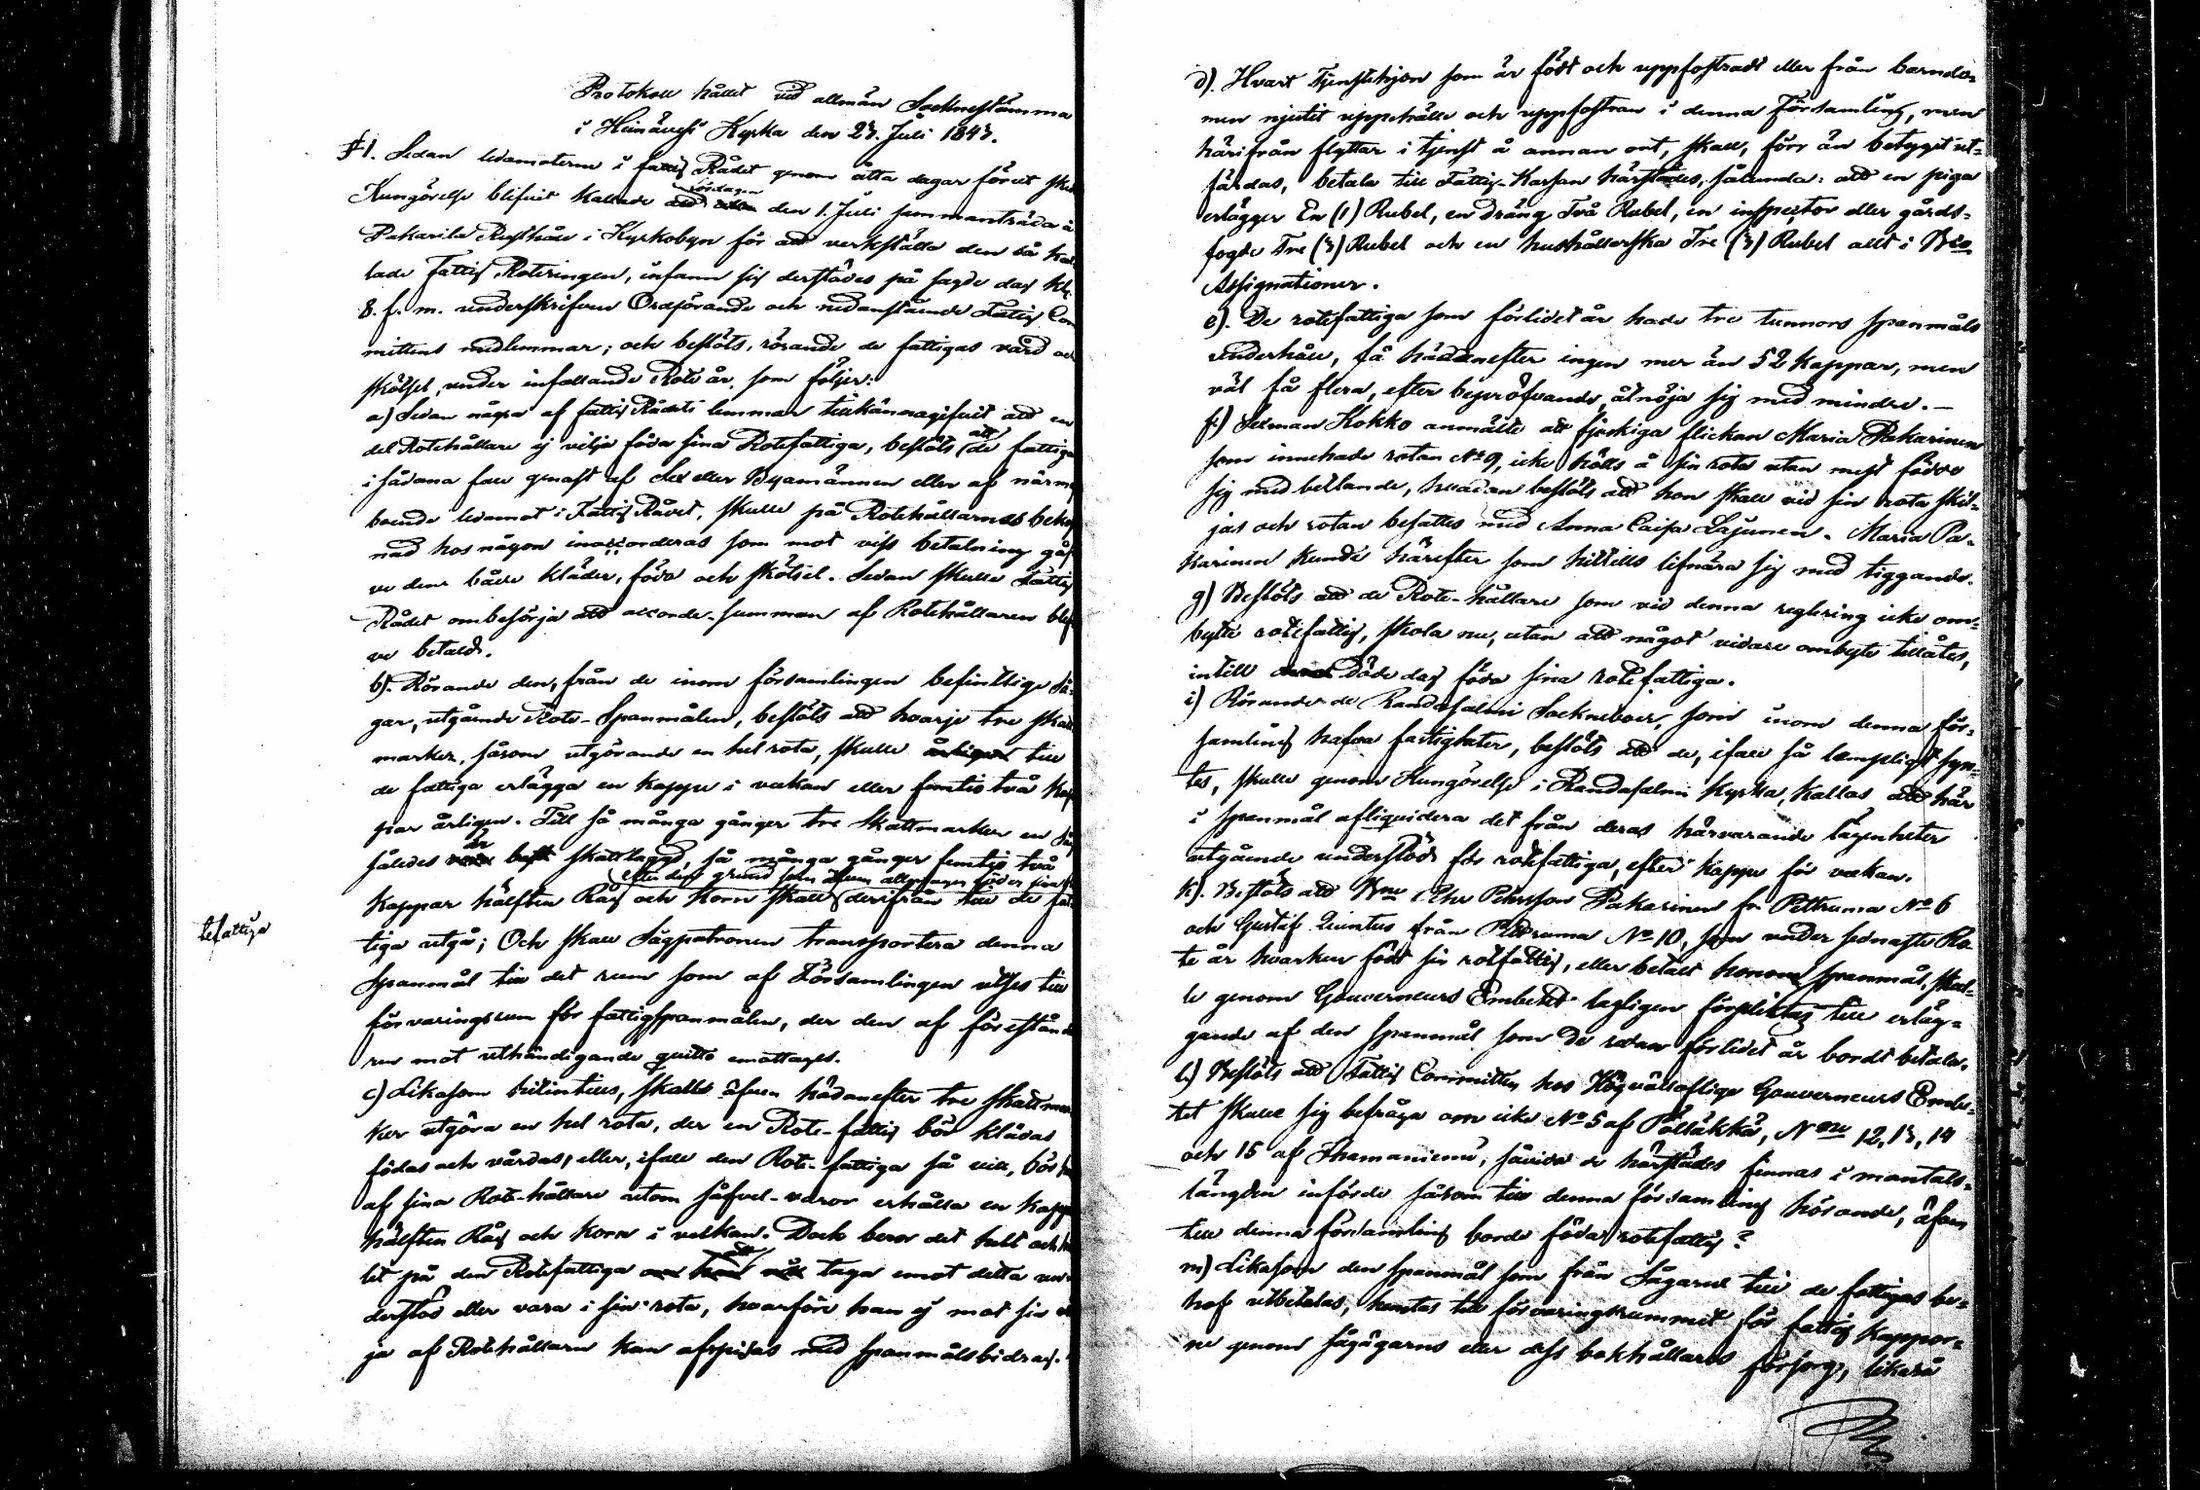 Protokoll hållet vid allmän Socknestämma
i Heinävesi Kyrka den 23. Juli 1843.
§1. Sedan ledamöterne i fattig Rådet genom åtta dagar förut sked
Kungörelse blifvit kallade att lördagen den 1. Juli sammanträda å
Pakarila Rusthåll i Kyrkobyn för att verkställa den så kal
lade Fattig Roteringen, infann sig derstädes på sagde dag kl.
8. f. m. underskrifven Ordförande och nedanstående Fattig Com
mittens medlemmar; och beslöts, rörande de fattigas vård oc
skötsel, under infallande Rote år, som följer:
a) Sedan några af fattig Rådets lemmar tillkännagifvit att en
del Rotehållare ej vilja föda sina Rotefattiga, beslöts att de fattiga
i sådana fall genast af Sex eller Byamännen eller af närm
boende ledamot i Fattig Rådet, skulle på Rotehållarnes bekost
nad hos någon inaccorderas som mot viss betalning gåf
ve dem både kläder, föda och skötsel. Sedan skulle Fattig
Rådet ombesörja att accords-summan af Rotehållaren blef
ve betald.
b). Rörande den, från de inom församlingen befintlige Så-
gar, utgående Rote-Spanmålen, beslöts att hvarje tre skatt
marker, såsom utgörande en hel rota, skulle årligen till
de fattiga erlägga en kappe i veckan eller femtio två kap
par årligen. Till så många gånger tre skattmarker en såg
således är skattlagd, så många gånger femtio två
efter dess grund som
kappar hälften Råg och Korn skall derifrån till de fat-
tiga utgå; Och skall Sågpatronen transportera denna
tefattiga
Spanmål till det rum som af Församlingen utses till
förvaringsrum för fattigspanmålen, der den af förestånda
ren mot uthändigande quitto emottages.
c) Likasom hitintills, skulle äfven hädanefter tre skattmar
ker utgöra en hel rota, der en Rote-fattig bör klädas
födas och vårdas, eller, ifall den Rote-fattiga så vill, bör han
af sina Rote-hållare utom såfvel-varor erhålla en kappe
hälften Råg och Korn i veckan. Dock beror det helt och hål
let på den Rotefattiga att taga emot detta un
derstöd eller vara i sin rota, hvarföre han ej mot sin vil
ja af Rotehållarn kan afspisas med spanmålsbidrag.
d). Hvart Tjenstehjon som är född och uppfostradt eller från barndo-
men njutit uppehälle och uppfostran i denna Församling, men
härifrån flyttar i tjenst å annan ort, skall, förr än betyget ut-
färdas, betala till Fattig-Kassan härstädes, sålunda: att en piga
erlägger En (1) Rubel, en dräng Två Rubel, en inspector eller gårds-
fogde Tre (3) Rubel och en hushållerska Tre (3) Rubel allt i Bco
Assignationer.
e). De rotefattiga som förlidet år hade tre tunnors spanmåls
underhåll, få hädanefter ingen mer än 52 kappar, men
väl få flera, efter bepröfvande, åtnöja sig med mindre.—
f.) Selman Kokko anmälte att sjeckiga flickan Maria Pakarinen
som innehade rotan No 9, icke hölls å sin rota utan mest födde
sig med bettlande, hvadan beslöts att hon skall vid sin rota skil-
jas och rotan besattes med Anna Caisa Lajunen. Maria Pa-
karinen kunde härefter som hittills lifnära sig med tiggande.
g) Beslöts att de Rote-hållare som vid denna reglering icke om-
bytte rotefattig, skola nu, utan att något vidare ombyte tillåtes,
intill döde dag föda sina rotefattiga.
i) Rörande de Randasalmi Socknebоer, som inom denna för-
samling hafva fastigheter, beslöts att de, ifall så lämpligt syn-
tes, skulle genom Kungörelse i Randasalmi Kyrka, kallas att här
i spanmål afliquidera det från deras härvarande lägenheter
utgående understöd för rotefattiga, efter kappe för veckan.
k). Beslöts att Bne Petr Pehrsson Pakarinen fr. Pettruma No 6
och Gustaf Quintus från Pettruma No 10, som under sednaste Ro-
te år hvarken födt sin rotfattig, eller betalt honom spanmål, skul-
le genom Gouverneurs Embetet lagligen förpliktas till erläg-
gande af den spanmål som de rotan förlidet år bordt betala.
l.) Beslöts att Fattig Committen hos Högvälloflige Gouverneurs Embe-
tet skulle sig befråga om icke No 5 af Pölläkkä, Nrne 12, 13, 14
och 15 af Ihamaniemi, såvida de härstädes finnas i mantals-
längden införde såsom till denna församling hörande, äfven
till denna församling borde föda rotefattig?
m) Likasom den spanmål som från Sågarne till de fattigas be-
hof utbetalas, hemtas till förvaringsrummet för fattig kappor-
ne genom sågägarns eller dess bokhållares försorg, likaså